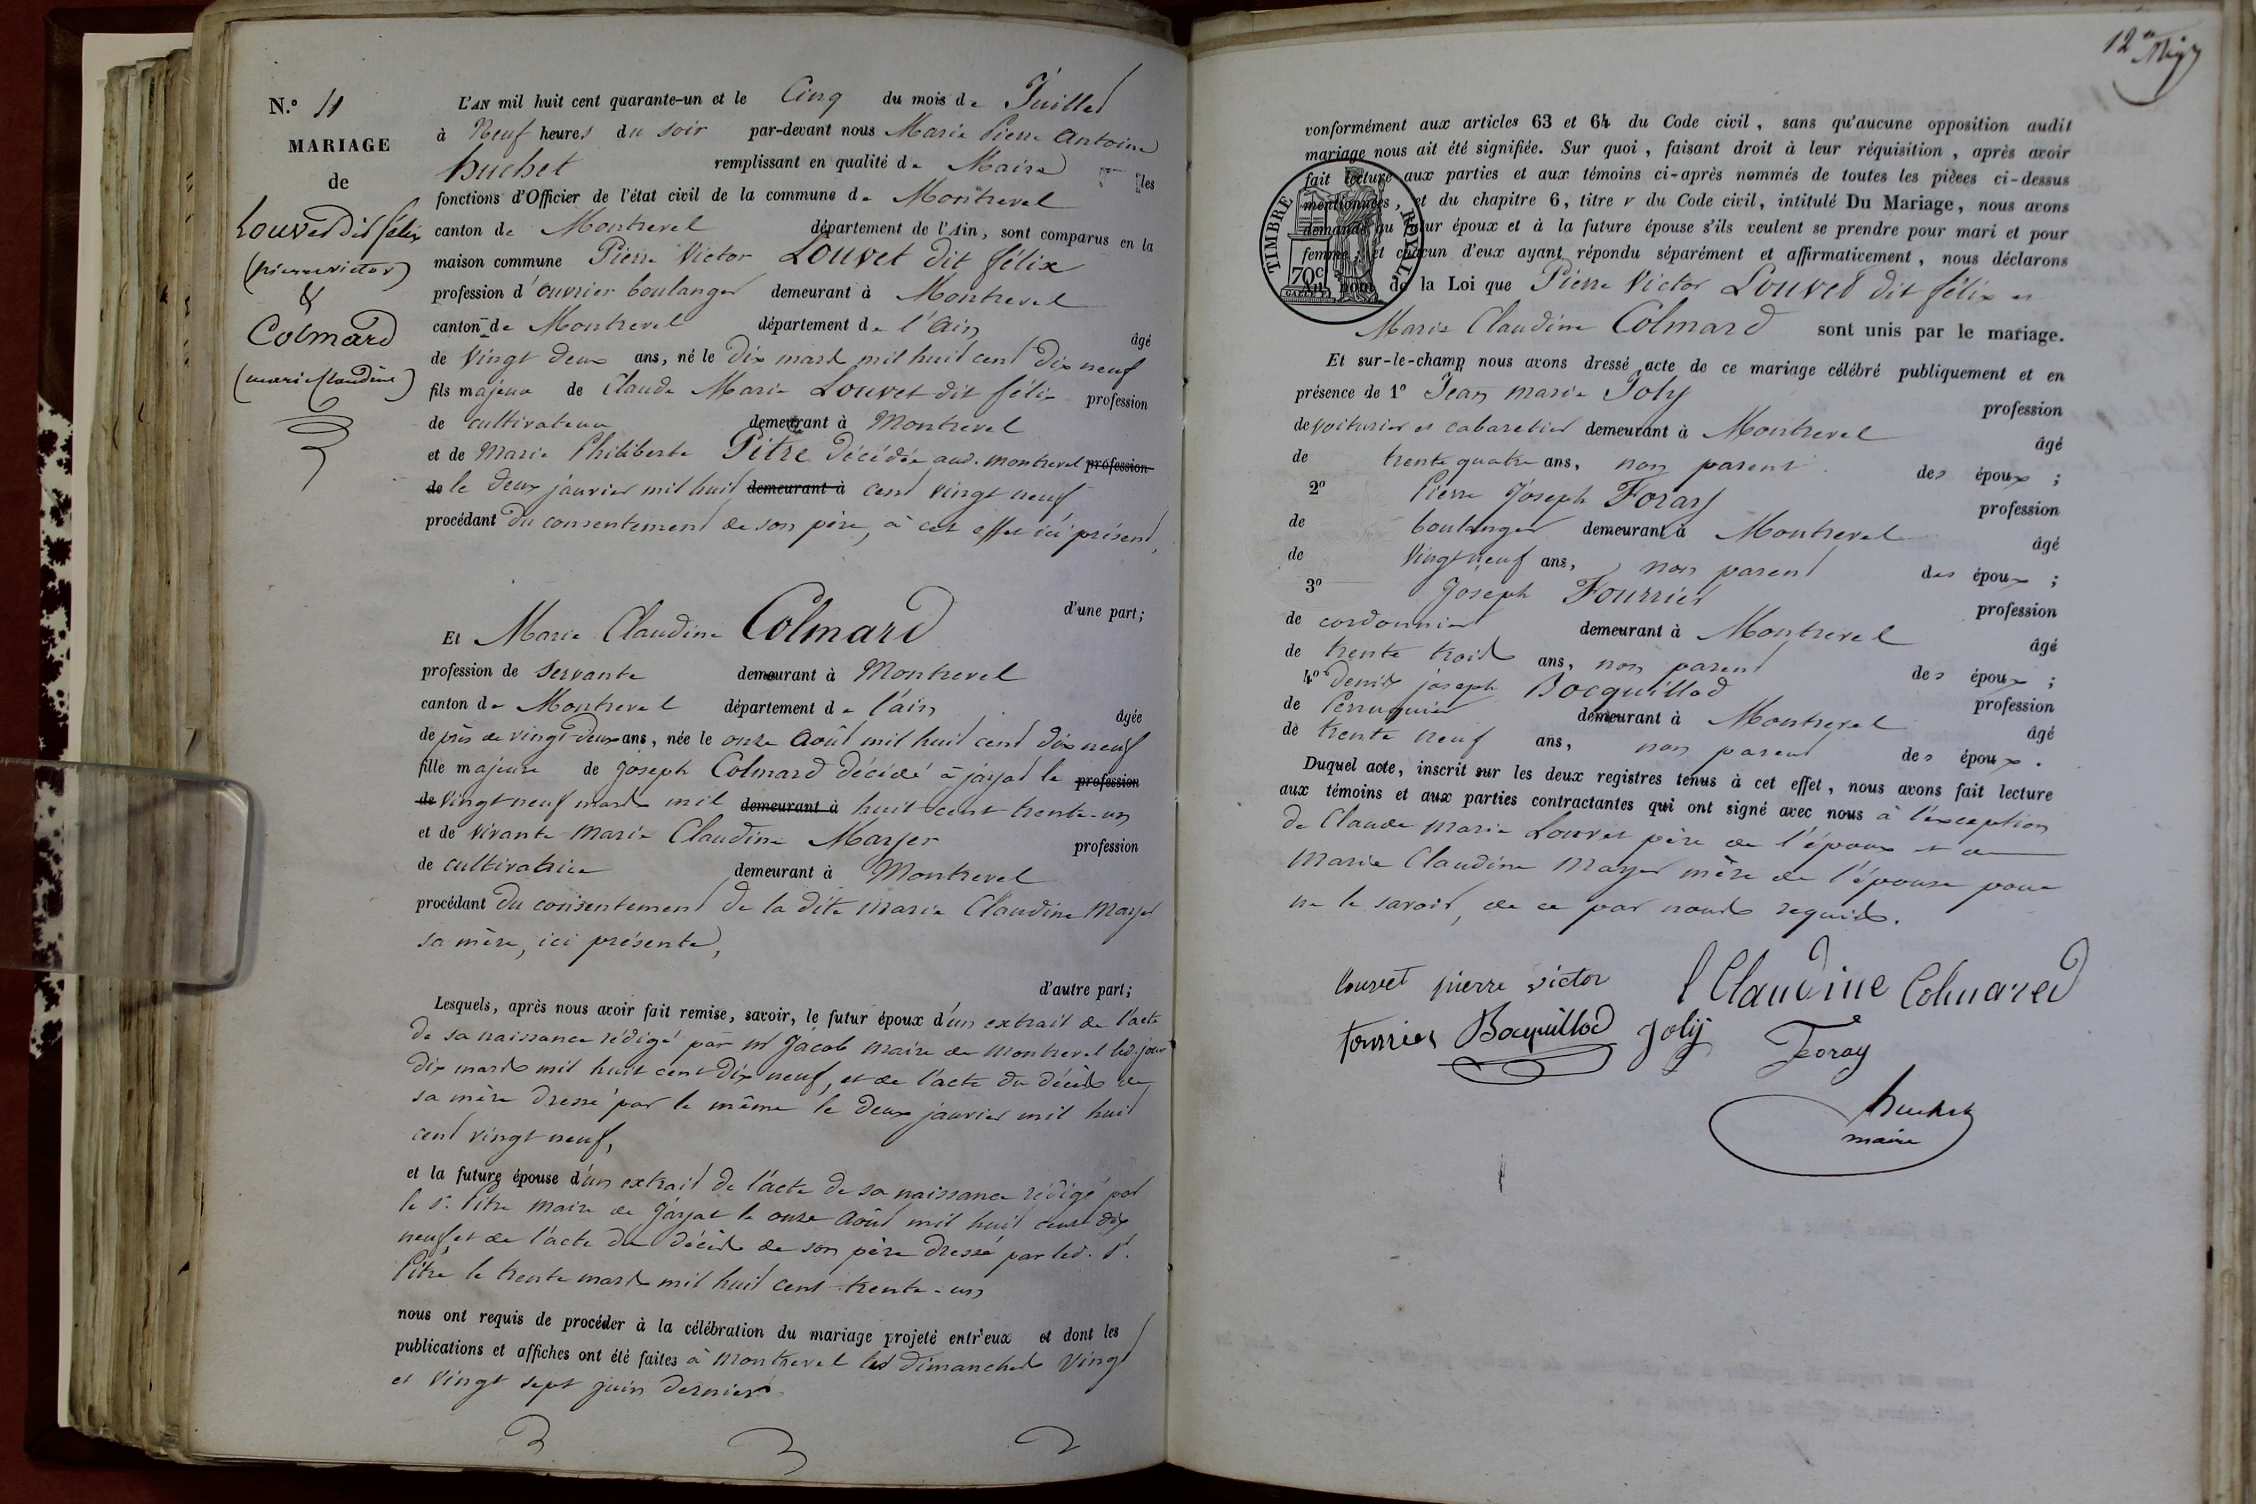 N.º 11
MARIAGE
de
Louvet dit félix
(pierre victor)
&
Colmard
(marie Claudine)
L'AN mil huit cent quarante-un et le Cinq du mois de Juillet
à Neuf heures du soir par-devant nous Marie Pierre Antoine
huchet remplissant en qualité de Maire les
fonctions d'Officier de l'état civil de la commune de Montrevel
canton de Montrevel département de l'Ain, sont comparus en la
maison commune Pierre Victor Louvet dit félix
profession d'ouvrier boulanger demeurant à Montrevel
canton de Montrevel département de l'Ain âgé
de vingt deux ans, né le dix mars mil huit cent dix neuf
fils majeur de Claude Marie Louvet dit félix profession
de cultivateur demeurant à Montrevel
et de Marie Philiberte Pitre décédée aud. montrevel profession
de le deux janvier mil huit demeurant à cent vingt neuf
procédant du consentement de son père, à cet effet ici présent,
d'une part;
Et Marie Claudine Colmard
profession de servante demeurant à Montrevel
canton de Montrevel département de l'ain âgée
de près de vingt deux ans, née le onze Août mil huit cent dix neuf
fille majeure de Joseph Colmard décédé à jayat le profession
de vingt neuf mars mil demeurant à huit cent trente-un
et de vivante Marie Claudine Mayer profession
de cultivatrice demeurant à Montrevel
procédant du consentement de la dite Marie Claudine Mayer
sa mère, ici présente,
d'autre part;
Lesquels, après nous avoir fait remise, savoir, le futur époux d'un extrait de l'acte
de sa naissance rédigé par mr Jacob maire de montrevel led. jour
dix mars mil huit cent dix neuf, et de l'acte du décès de
sa mère dressé par le même le deux janvier mil huit
cent vingt neuf,
et la future épouse d'un extrait de l'acte de sa naissance rédigé par
le sr. Pitre maire de Jayat le onze Août mil huit cent dix
neuf et de l'acte du décès de son père dressé par led. sr.
Pitre le trente mars mil huit cent trente-un
nous ont requis de procéder à la célébration du mariage projeté entr'eux et dont les
publications et affiches ont été faites à Montrevel les dimanches vingt
et vingt sept juin dernier
12e
conformément aux articles 63 et 64 du Code civil, sans qu'aucune opposition audit
mariage nous ait été signifiée. Sur quoi, faisant droit à leur réquisition, après avoir
fait lecture aux parties et aux témoins ci-après nommés de toutes les pièces ci-dessus
mentionnées, et du chapitre 6, titre v du Code civil, intitulé Du Mariage, nous avons
demandé au futur époux et à la future épouse s'ils veulent se prendre pour mari et pour
femme; et chacun d'eux ayant répondu séparément et affirmativement, nous déclarons
au nom de la Loi que Pierre Victor Louvet dit félix et
Marie Claudine Colmard sont unis par le mariage.
TIMBRE ROYAL
70c
Et sur-le-champ nous avons dressé acte de ce mariage célébré publiquement et en
présence de 1º Jean marie Joly profession
de voiturier et cabaretier demeurant à Montrevel âgé
de trente quatre ans, non parent des époux;
2º Pierre Joseph Foray profession
de boulanger demeurant à Montrevel âgé
de vingt neuf ans, non parent des époux;
3º Joseph Fourrier profession
de cordonnier demeurant à Montrevel âgé
de trente trois ans, non parent des époux;
4º Denis joseph Bocquillod profession
de Perruquier demeurant à Montrevel âgé
de trente neuf ans, non parent des époux.
Duquel acte, inscrit sur les deux registres tenus à cet effet, nous avons fait lecture
aux témoins et aux parties contractantes qui ont signé avec nous à l'exception
de Claude Marie Louvet père de l'époux et de
Marie Claudine Mayer mère de l'épouse pour
ne le savoir, de ce par nous requis.
louvet pierre victor Claudine Colmard
fourrier Bocquillod Joly Foray
huchet
maire